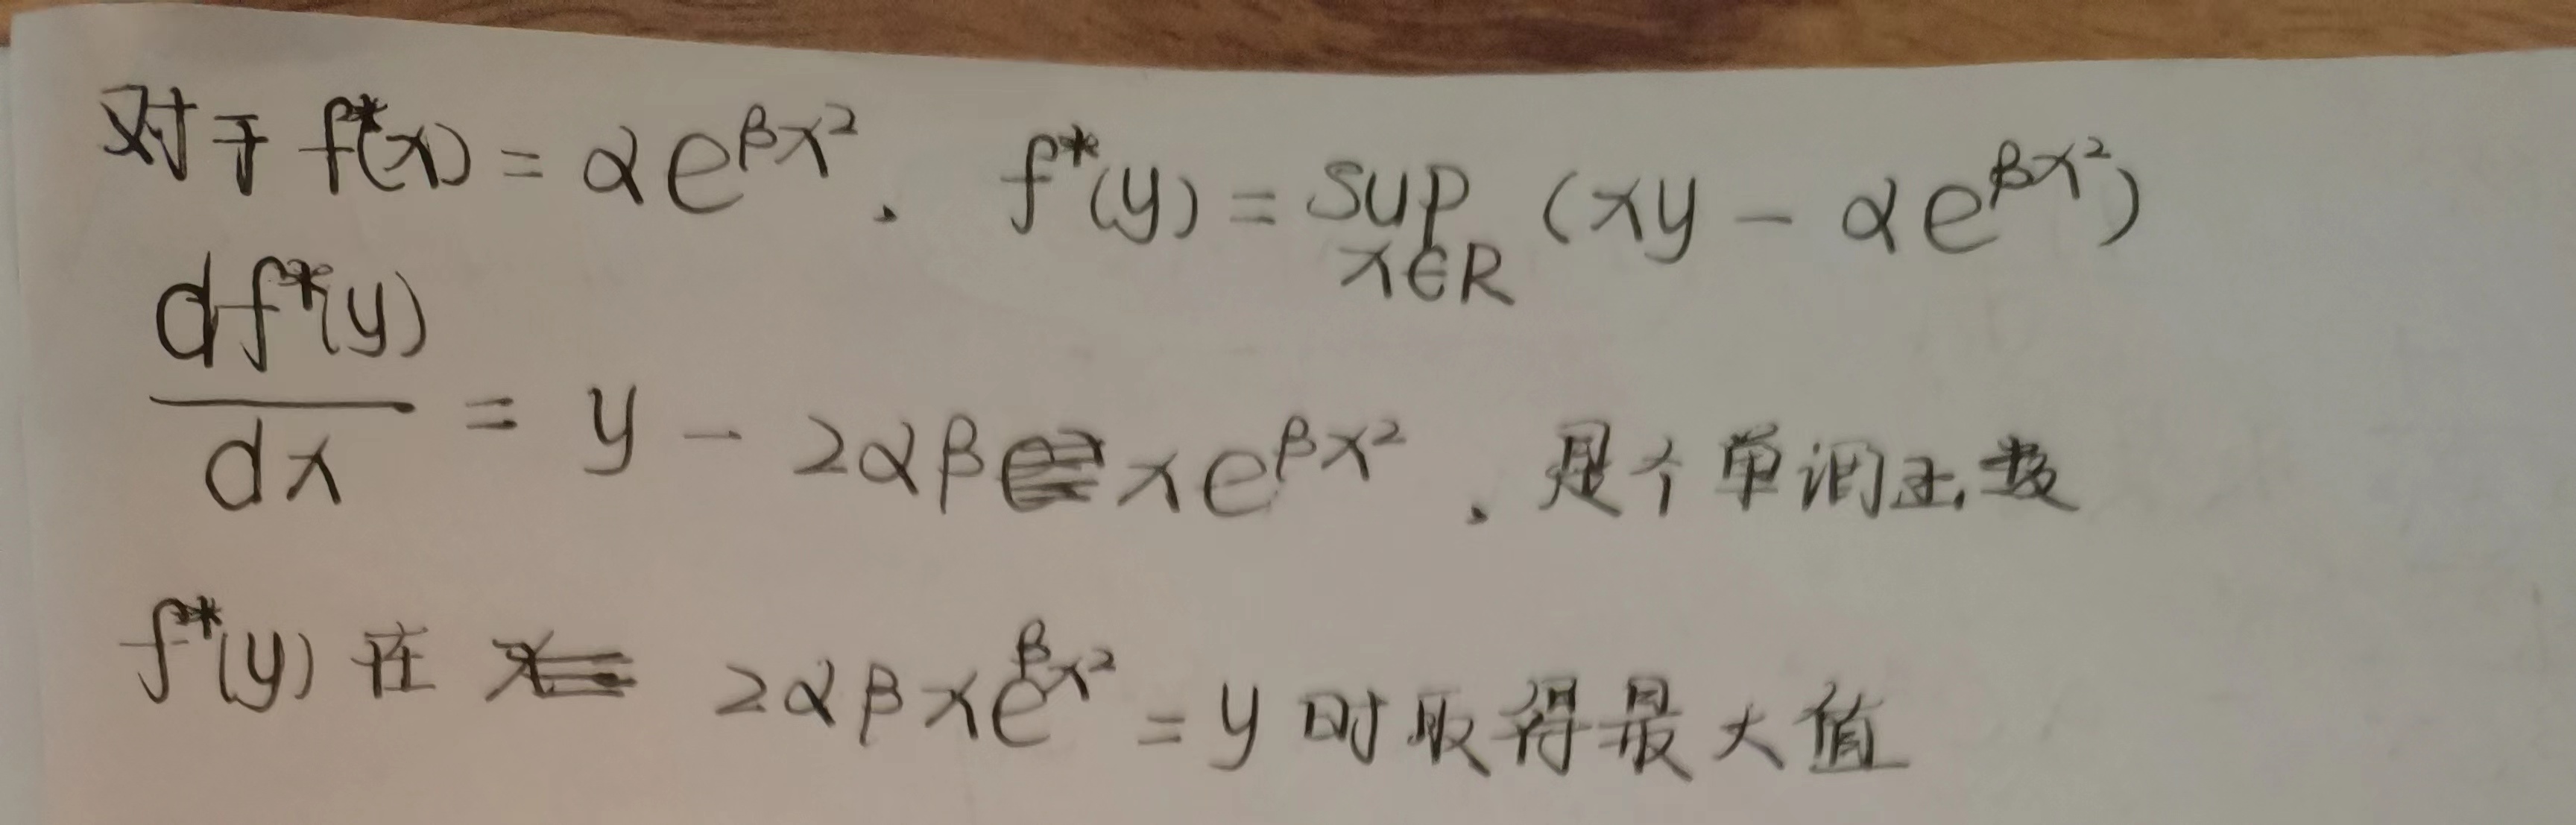 对于 f*(x) = αe^{βx²}. f*(y) = sup_{x∈R} (xy - αe^{βx²})
df*(y)/dx = y - 2αβxe^{βx²}. 是个单调函数
f*(y) 在 2αβxe^{βx²} = y 时取得最大值